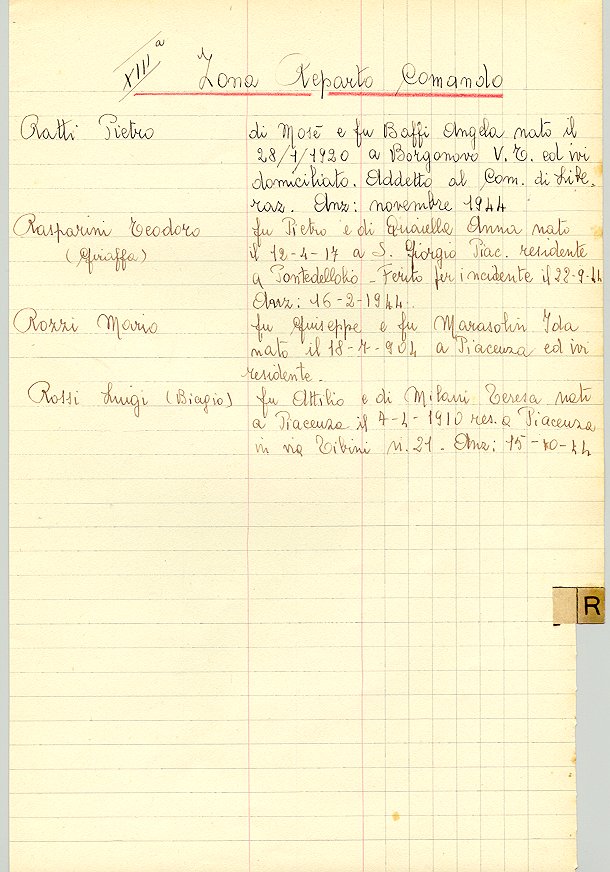 XIIIª Zona Reparto Comando
Ratti Pietro di Mosè e fu Baffi Angela nato il
28/7/1920 a Borgonovo V. T. ed ivi
domiciliato. Addetto al Com. di Libe-
raz. Anz: novembre 1944
Rasparini Teodoro fu Pietro e di Anna nato
(Giraffa) il 12-4-17 a S. Giorgio Piac. residente
a Pontedellolio - Ferito per incidente il 22-9-44
Anz: 16-2-1944.
Rozzi Mario fu Giuseppe e fu Marasolin Ida
nato il 18-7-904 a Piacenza ed ivi
residente.
Rossi Luigi (Biagio) fu Attilio e di Milani Teresa nato
a Piacenza il 1910 res. a Piacenza
in via Tibini n. 21. Anz: 15-10-44
R